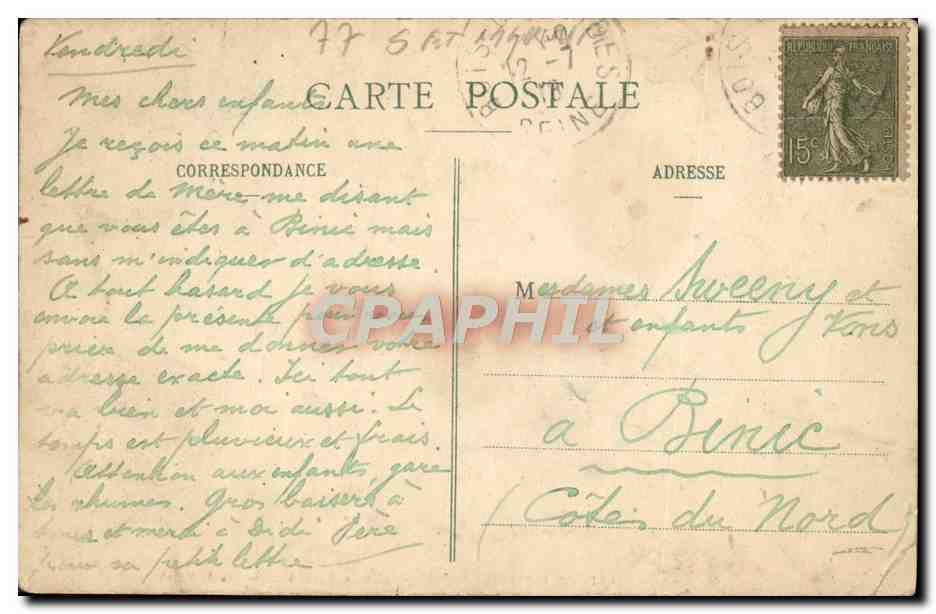 Vendredi
77
CARTE POSTALE
REPUBLIQUE FRANÇAISE
15c
POSTES
CORRESPONDANCE
ADRESSE
Mes chers enfants
Je reçois ce matin une
lettre de Mère me disant
que vous êtes à Binic mais
sans m'indiquer d'adresse.
A tout hasard je vous
envoie la présente pour vous
prier de me donner votre
adresse exacte. Ici tout
va bien et moi aussi. Le
temps est pluvieux et frais.
Attention aux enfants, gare
les rhumes. Gros baisers à
tous et merci à Didi Père
pour sa petite lettre
Mesdames Sweeny et
et enfants Vons
à Binic
(Côtes du Nord)
CPAPHIL